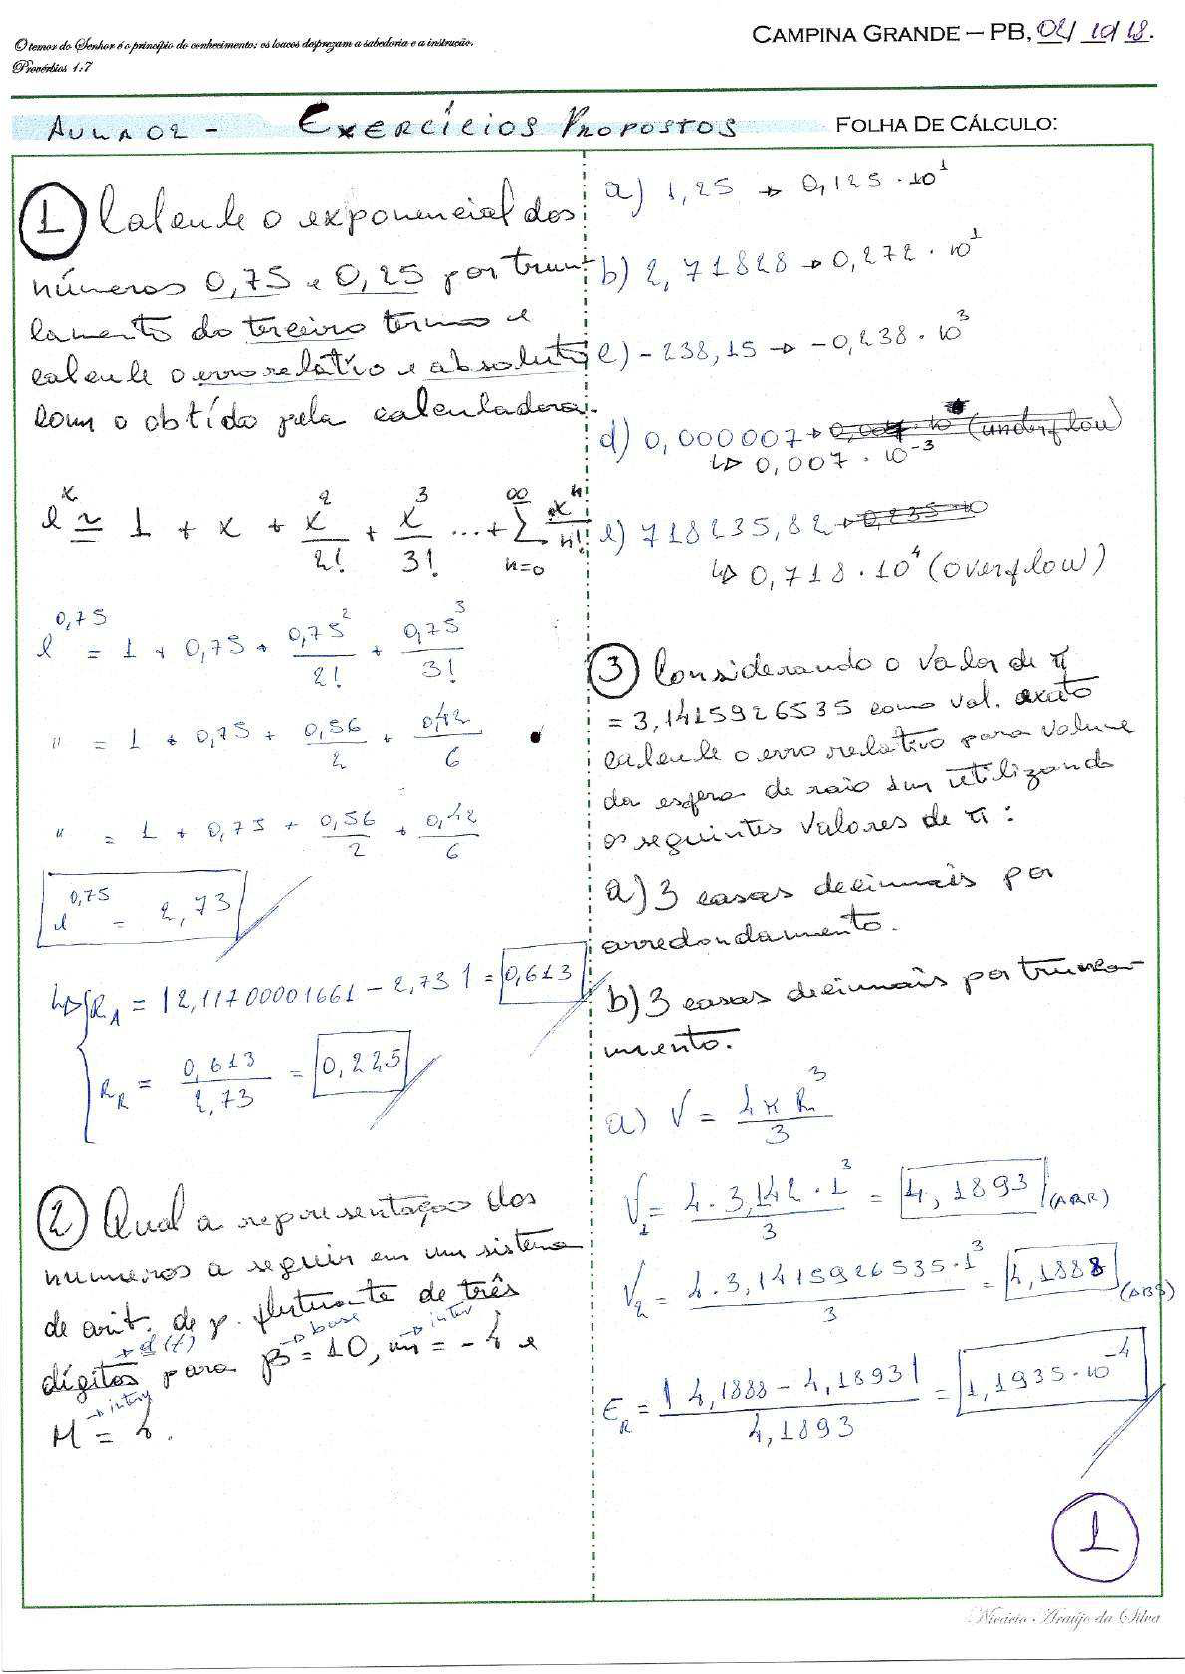 O temor do Senhor é o princípio do conhecimento; os loucos desprezam a sabedoria e a instrução.
Provérbios 1:7
CAMPINA GRANDE – PB, 04/10/18.
AULA 02 - EXERCÍCIOS PROPOSTOS
FOLHA DE CÁLCULO:
1 Calcule o exponencial dos
números 0,75 e 0,25 por trun-
camento do terceiro termo e
calcule o erro relativo e absoluto
com o obtido pela calculadora.
e^x ≃ 1 + x + x²/2! + x³/3! ... + ∞ Σ n=0 x^n/n!
e^0,75 = 1 + 0,75 + 0,75²/2! + 0,75³/3!
" = 1 + 0,75 + 0,56/2 + 0,42/6
" = 1 + 0,75 + 0,56/2 + 0,42/6
e^0,75 = 2,73
↳ { R_A = |2,11700001661 - 2,73| = 0,613
R_R = 0,613/2,73 = 0,225
2 Qual a representação dos
números a seguir em um sistema
de arit. de p. flutuante de três
→ d(t) → base → inter
dígitos para β = 10, m = -4 e
→ inter
M = 4.
a) 1,25 → 0,125 · 10¹
b) 2,71828 → 0,272 · 10¹
c) -238,15 → -0,238 · 10³
d) 0,000007 → (underflow)
↳ 0,007 · 10⁻³
e) 718235,82 → 0,235 · 10
↳ 0,718 · 10⁴ (overflow)
3 Considerando o valor de π
= 3,1415926535 como val. exato
calcule o erro relativo para volume
da esfera de raio 1m utilizando
os seguintes valores de π:
a) 3 casas decimais por
arredondamento.
b) 3 casas decimais por trunca-
mento.
a) V = 4πR³/3
V₁ = 4 · 3,142 · 1³/3 = 4,1893 (ARR)
V₂ = 4 · 3,1415926535 · 1³/3 = 4,1888 (ABS)
E_R = |4,1888 - 4,1893|/4,1893 = 1,1935 · 10⁻⁴
1
Nicácio Araújo da Silva